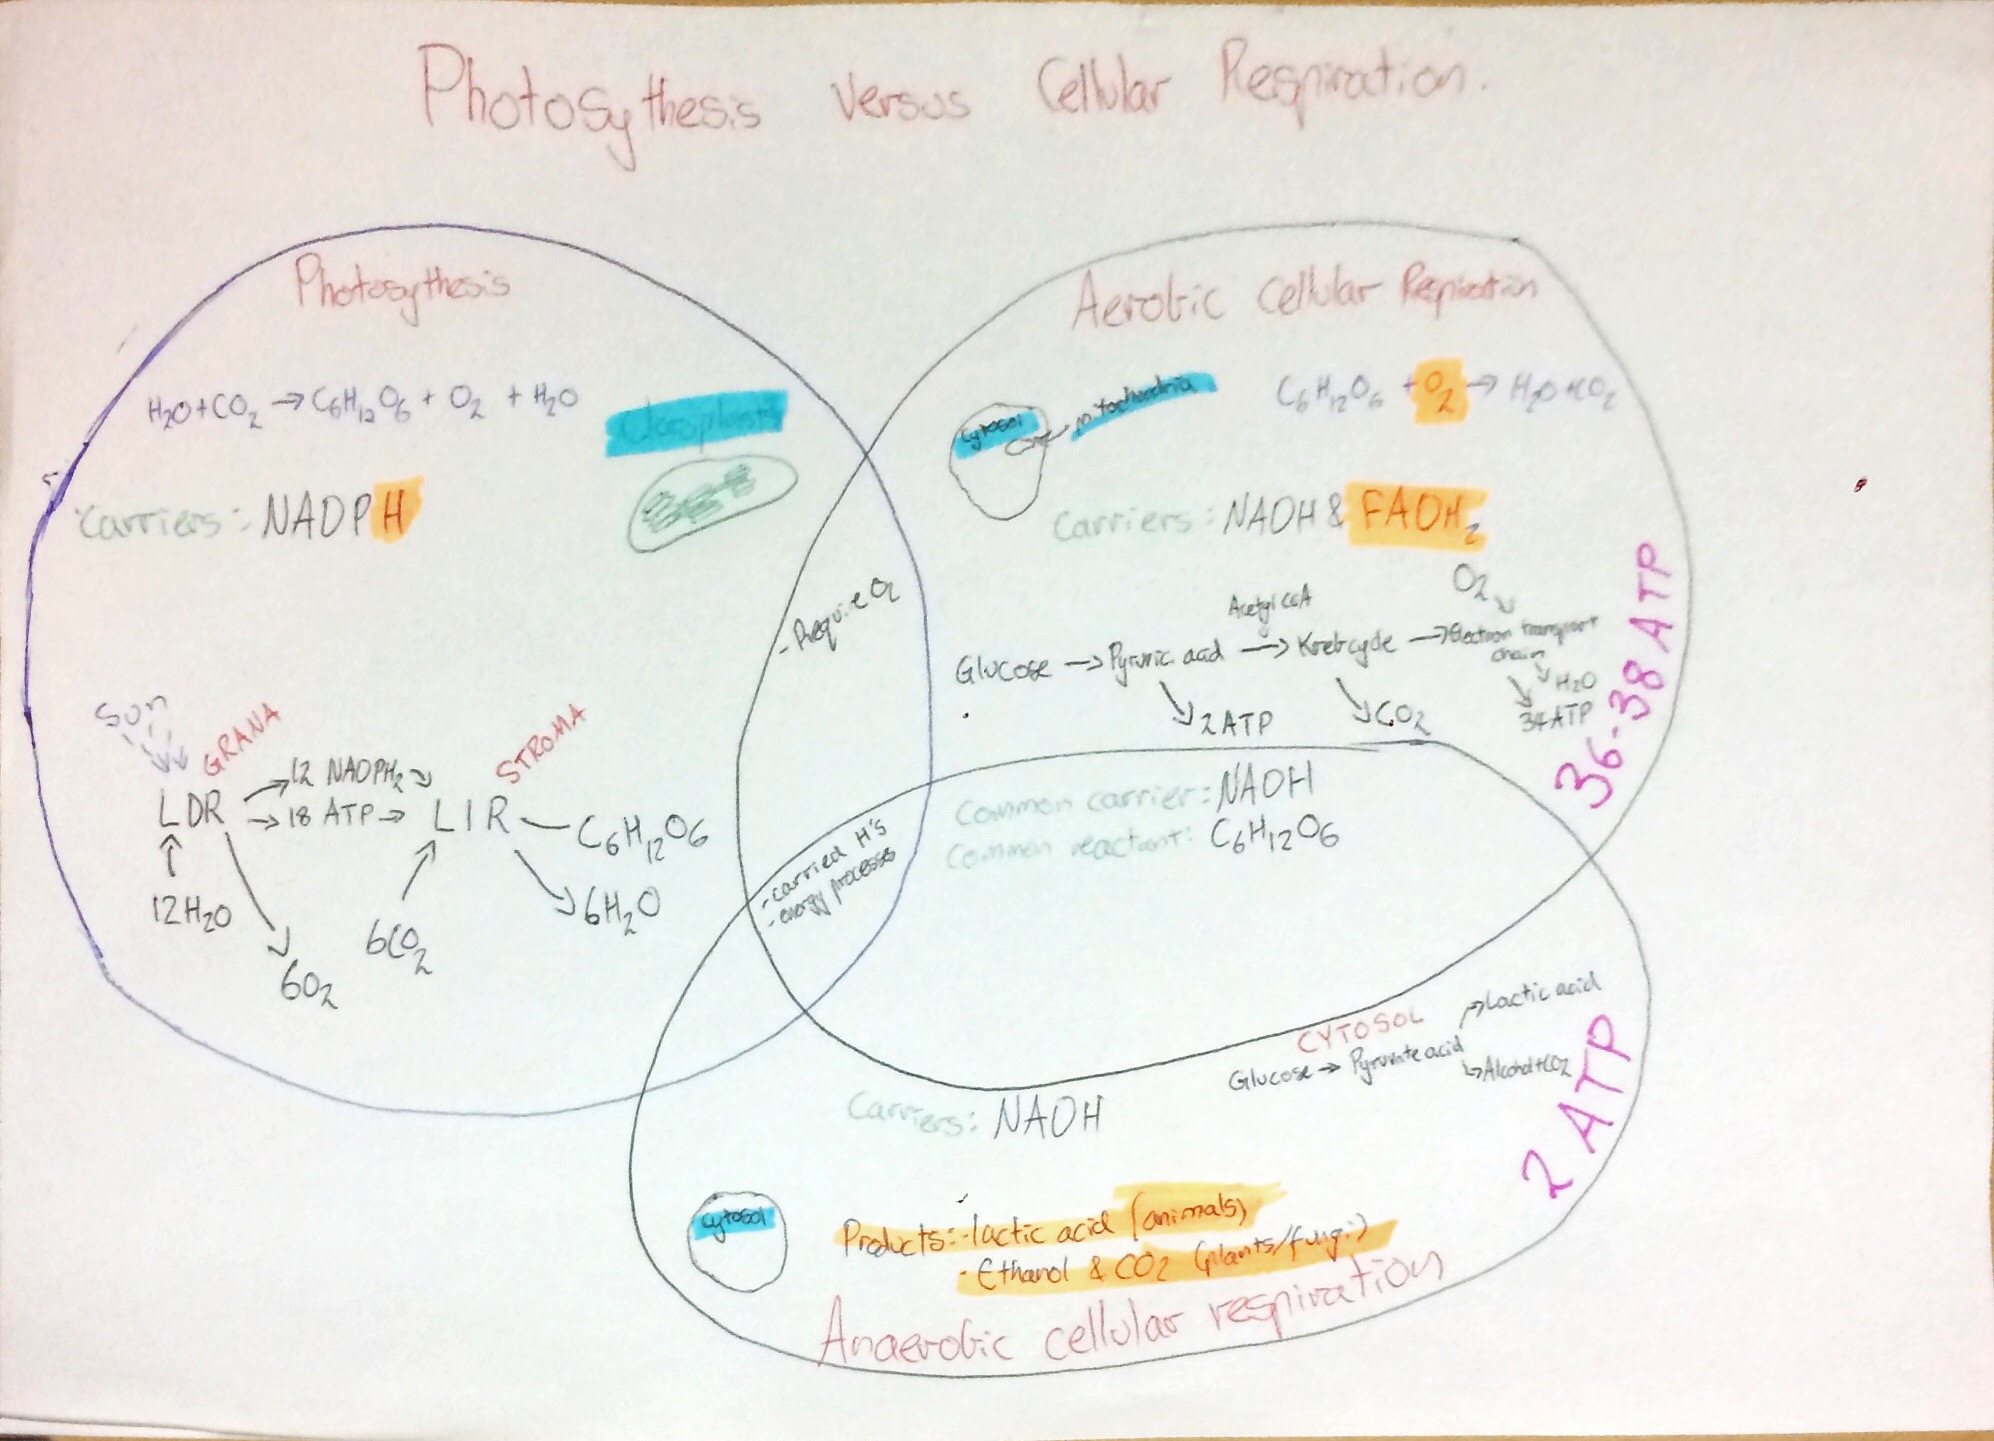 Photosythesis versus Cellular Respiration.
Photosythesis
H₂O+CO₂ → C₆H₁₂O₆ + O₂ + H₂O
Cloroplasts
Carriers: NADPH
Sun
GRANA
STROMA
12 NADPH₂
LDR
18 ATP
LIR
C₆H₁₂O₆
12H₂O
6CO₂
6H₂O
6O₂
- Require O₂
- carried H's
- energy processes
Aerobic Cellular Respiration
cytosol
mitochondria
C₆H₁₂O₆ + O₂ → H₂O+CO₂
Carriers: NADH & FADH₂
O₂
Acetyl CoA
Glucose → Pyruvic acid → Kreb cycle → Electron transport
chain
H₂O
2 ATP
CO₂
34 ATP
36-38 ATP
Common carrier: NADH
Common reactant: C₆H₁₂O₆
CYTOSOL
Lactic acid
Glucose → Pyruvate acid
Alcohol+CO₂
2 ATP
Carriers: NADH
cytosol
Products: - lactic acid (animals)
- Ethanol & CO2 (plants/fungi)
Anaerobic cellular respiration